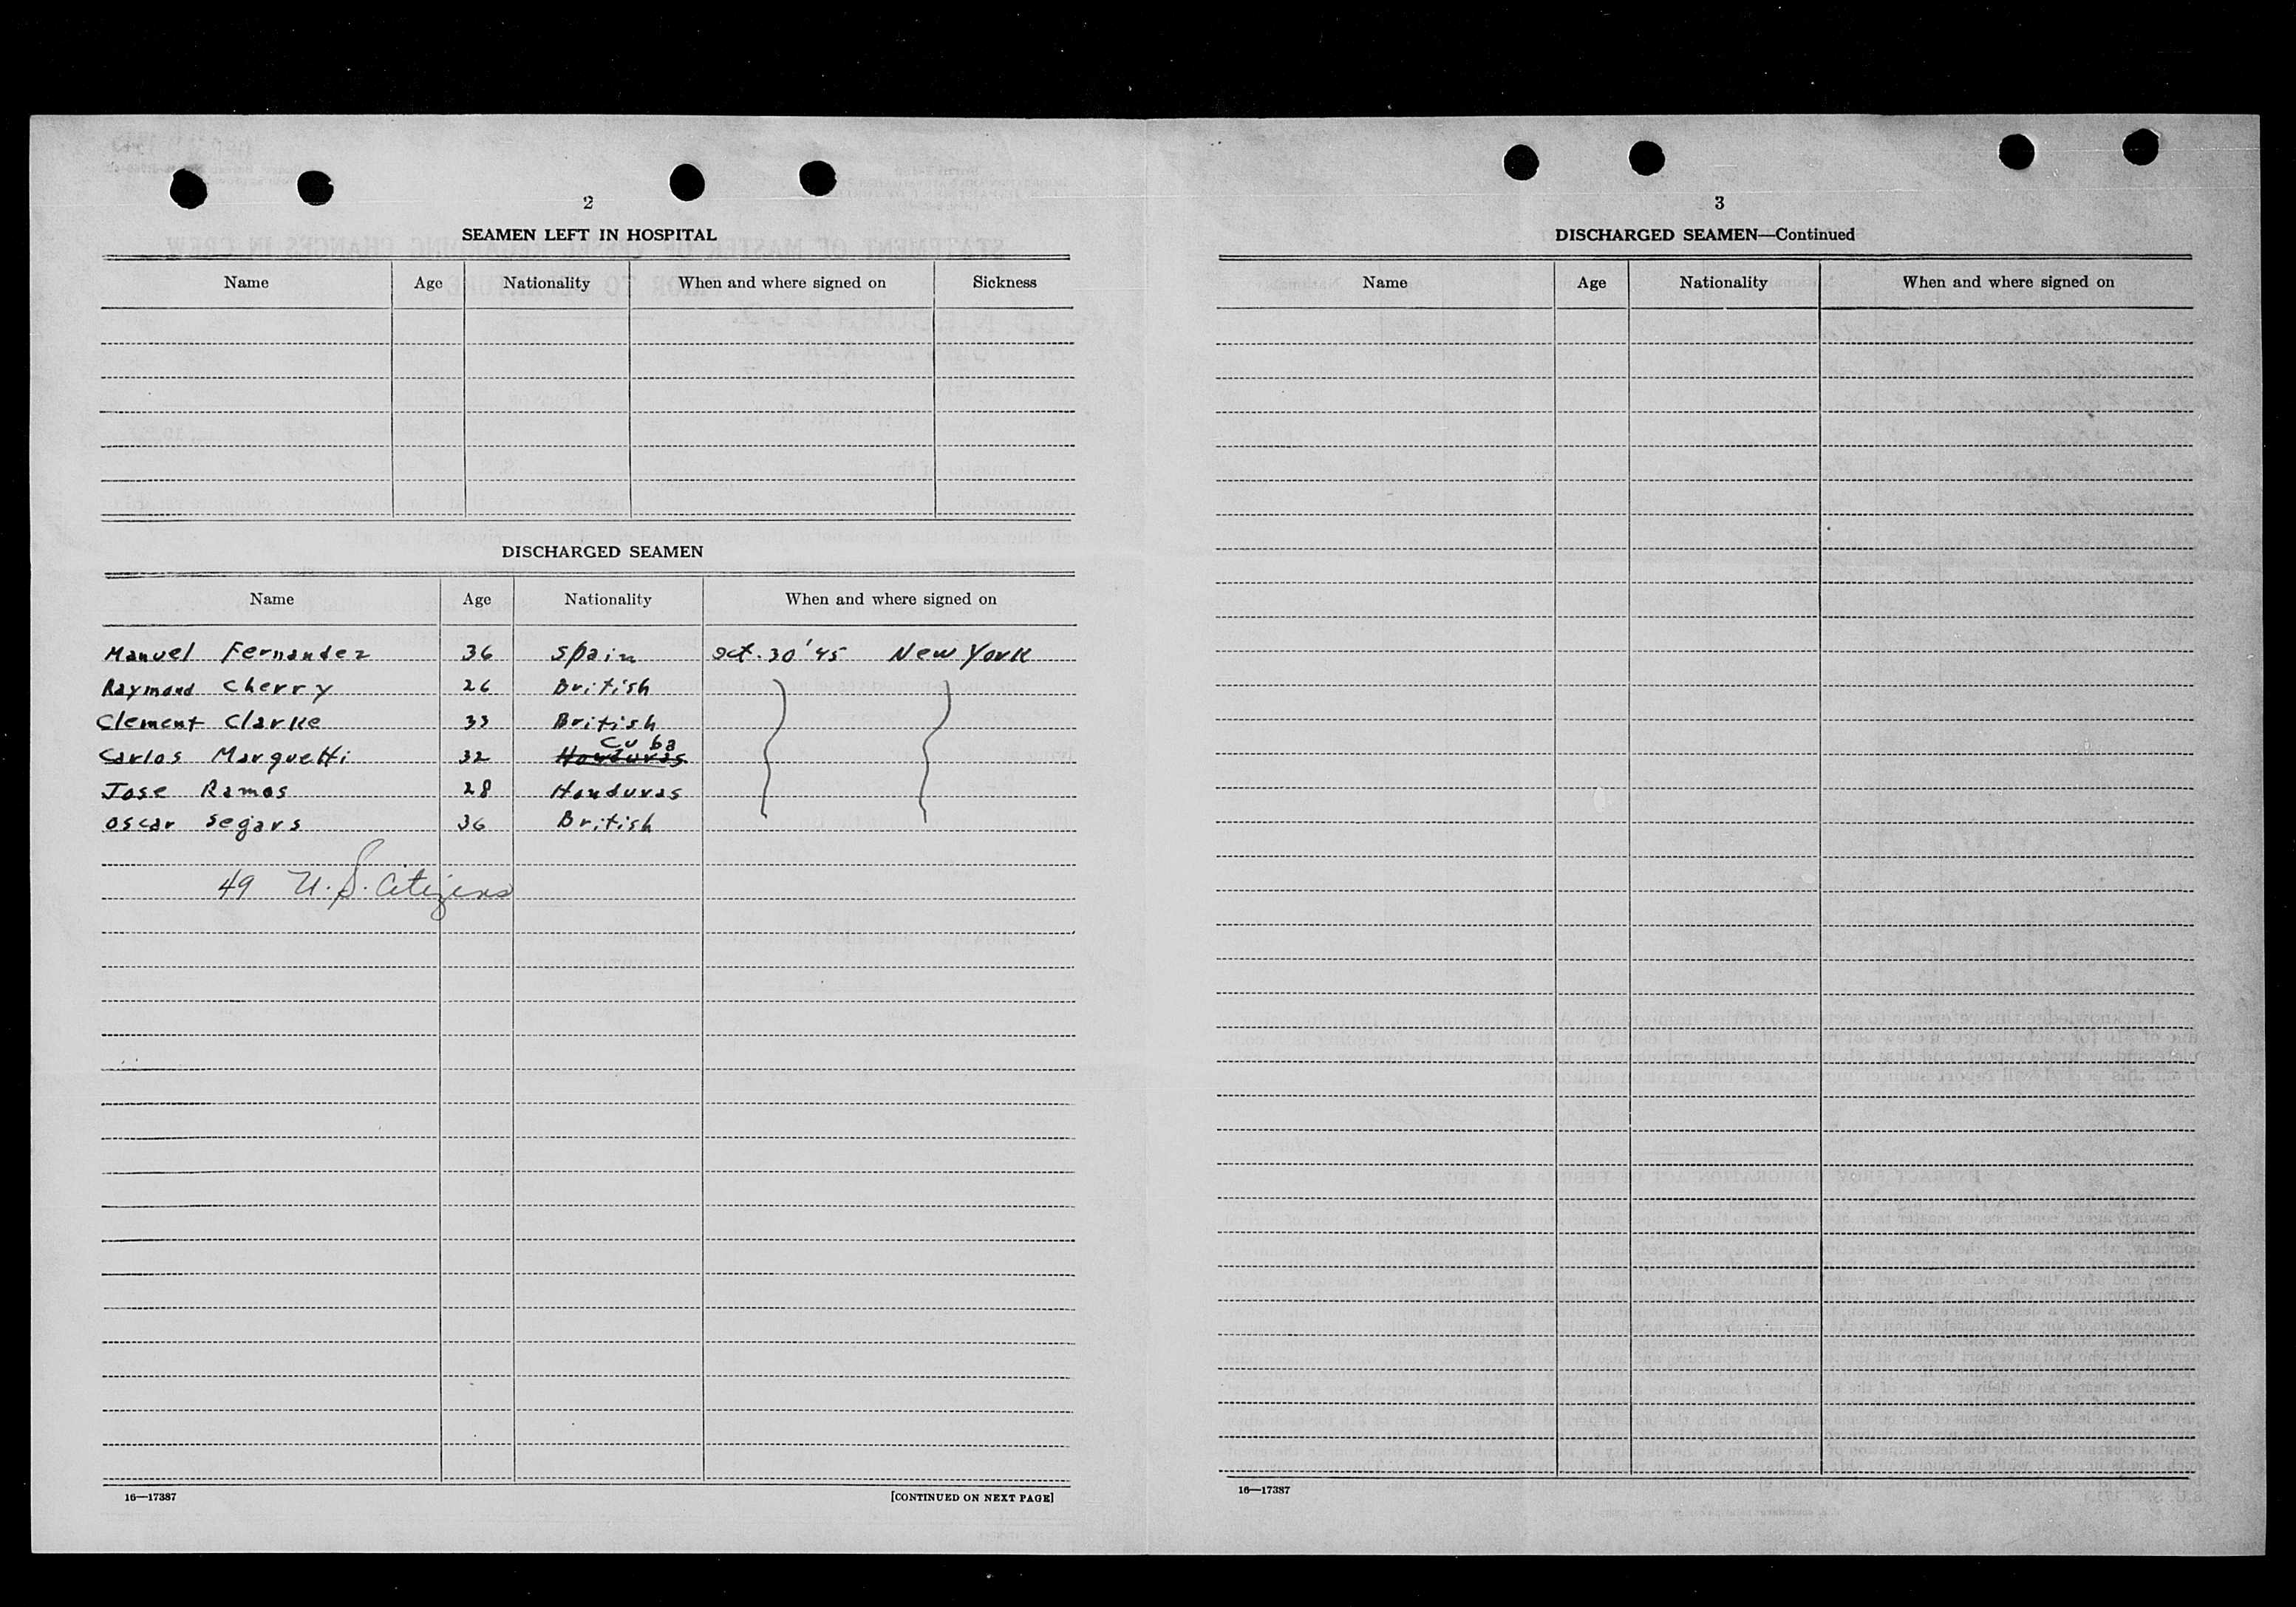 2
SEAMEN LEFT IN HOSPITAL
Name Age Nationality When and where signed on Sickness
DISCHARGED SEAMEN
Name Age Nationality When and where signed on
Manuel Fernandez 36 Spain Oct. 30 '45 New York
Raymond Cherry 26 British
Clement Clarke 33 British
Cuba
Carlos Marquetti 32 Honduras
Jose Ramos 28 Honduras
Oscar Segars 36 British
49 U.S. Citizens
16—17387 [CONTINUED ON NEXT PAGE]
3
DISCHARGED SEAMEN—Continued
Name Age Nationality When and where signed on
16—17387